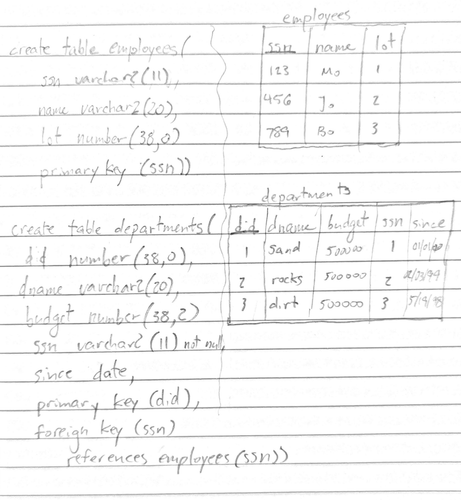 create table employees(
ssn varchar2(11),
name varchar2(20),
lot number(38,0)
primary key (ssn))
employees
ssn name lot
123 Mo 1
456 Jo 2
789 Bo 3
create table departments(
did number(38,0),
dname varchar2(20),
budget number(38,2)
ssn varchar2(11) not null,
since date,
primary key (did),
foreign key (ssn)
references employees(ssn))
departments
did dname budget ssn since
1 sand 500000 1
2 rocks 500000 2
3 dirt 500000 3